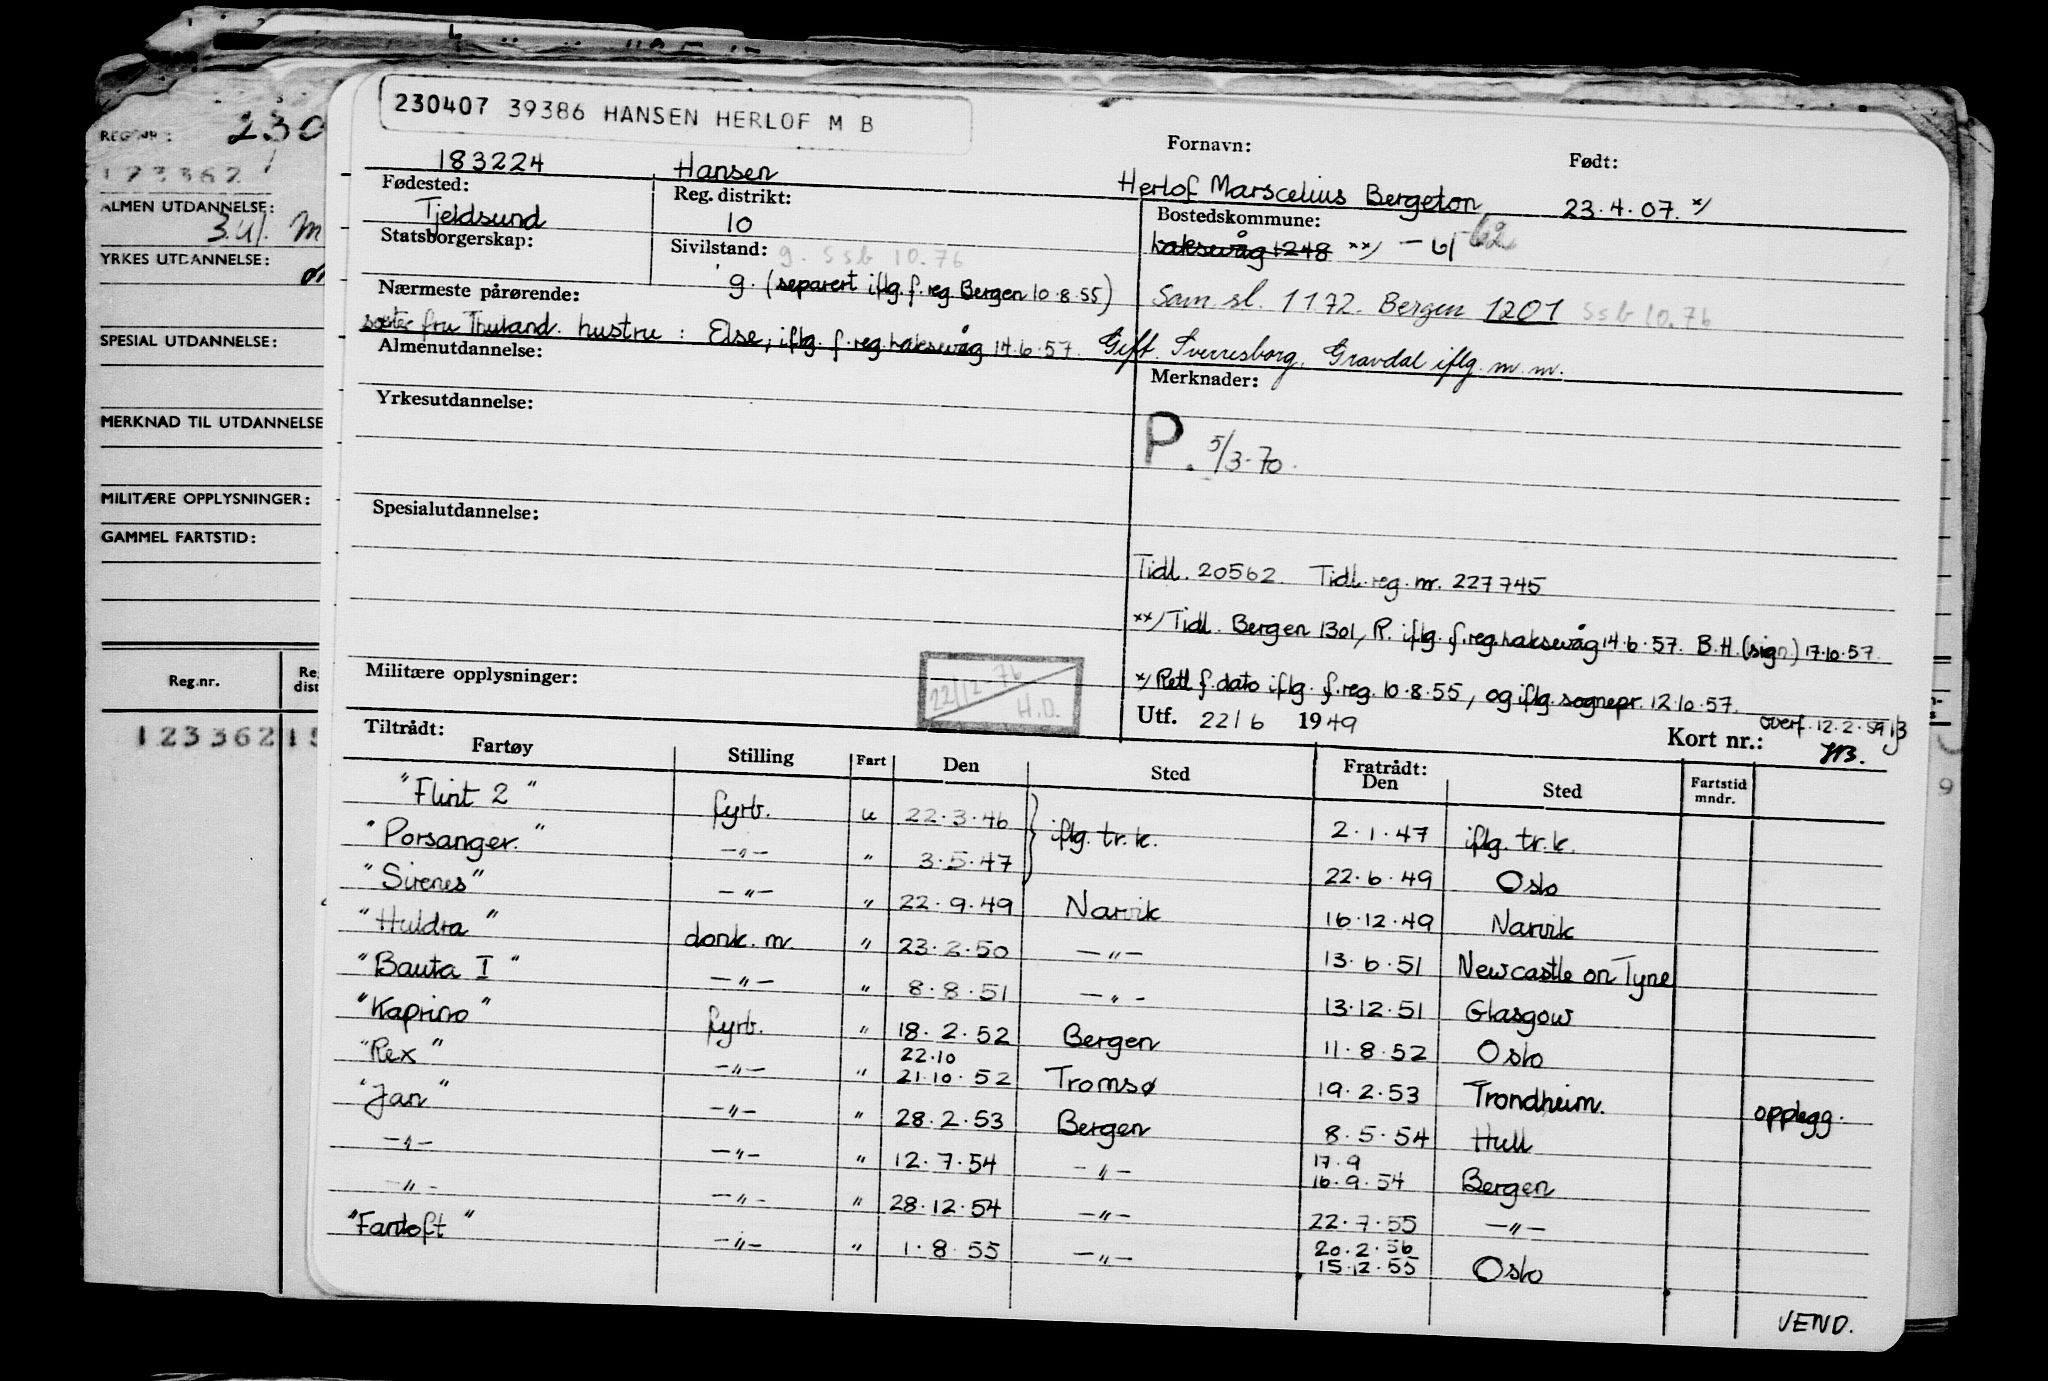 230407 39386 HANSEN HERLOF M B
REG.NR.: 230
123362
ALMEN UTDANNELSE:
YRKES UTDANNELSE:
SPESIAL UTDANNELSE:
MERKNAD TIL UTDANNELSE
MILITÆRE OPPLYSNINGER:
GAMMEL FARTSTID:
Reg.nr.
123362
Fornavn: Født:
183224 Hansen Herlof Marscelius Bergeton 23.4.07. x/
Fødested: Reg. distrikt: Bostedskommune:
Tjeldsund 10 Laksevåg 1248 xx/
Statsborgerskap: Sivilstand: g. Ssb 10.76
g. (separert iflg. f.reg. Bergen 10.8.55) Sam. sl. 1172. Bergen 1201 Ssb 10.76
Nærmeste pårørende:
fru Thuland. hustru: Else, iflg. f.reg. Laksevåg 14.6.57. Gift. Sverresborg, Gravdal iflg. m.m.
Almenutdannelse: Merknader:
Yrkesutdannelse:
P. 5/3-70.
Spesialutdannelse:
Tidl. 20562. Tidl. reg. nr. 227745
xx/ Tidl. Bergen 1301, P. iflg. f.reg. Laksevåg 14.6.57. B.H. (sign) 17.10.57.
Militære opplysninger: 22/12-76 H.D.
x/ Rett f.dato iflg. f.reg. 10.8.55, og iflg. sognepr. 12.10.57.
Utf. 22/6 1949 Kort nr.: overf. 12.2.59
Tiltrådt: Fratrådt:
Fartøy Stilling Fart Den Sted Den Sted Fartstid mndr.
"Flint 2" fyrb. u 22.3.46 iflg. tr.k. 2.1.47 iflg. tr.k.
"Porsanger" -"- " 3.5.47 22.6.49 Oslo
"Sirenes" -"- " 22.9.49 Narvik 16.12.49 Narvik
"Huldra" donk.m " 23.2.50 -"- 13.6.51 Newcastle on Tyne
"Bauta I" -"- " 8.8.51 -"- 13.12.51 Glasgow
"Kaprino" fyrb. " 18.2.52 Bergen 11.8.52 Oslo
"Rex" -"- " 22.10 21.10.52 Tromsø 19.2.53 Trondheim. opplegg.
"Jan" -"- " 28.2.53 Bergen 8.5.54 Hull
-"- -"- " 12.7.54 -"- 17.9 16.9.54 Bergen
-"- -"- " 28.12.54 -"- 22.7.55 -"-
"Fantoft" -"- " 1.8.55 -"- 20.2.56 15.12.55 Oslo
VEND.